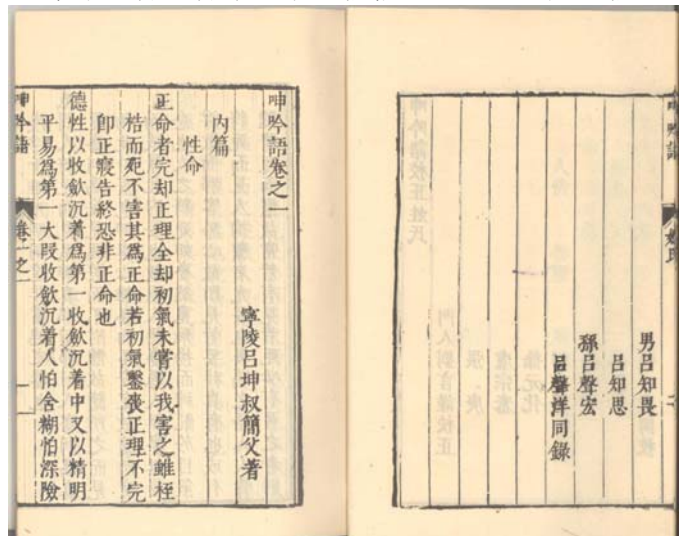 呻吟語 姓氏
男呂知畏
呂知思
孫呂聲宏
呂聲洋同錄
呻吟語卷之一
寧陵呂坤叔簡父著
內篇
性命
正命者完却正理全却初氣未嘗以我害之雖桎
梏而死不害其爲正命若初氣鑿喪正理不完
卽正寢告終恐非正命也
德性以收斂沉着爲第一收斂沉着中又以精明
平易爲第一大段收斂沉着人怕含糊怕深險
呻吟語 卷一之一 一